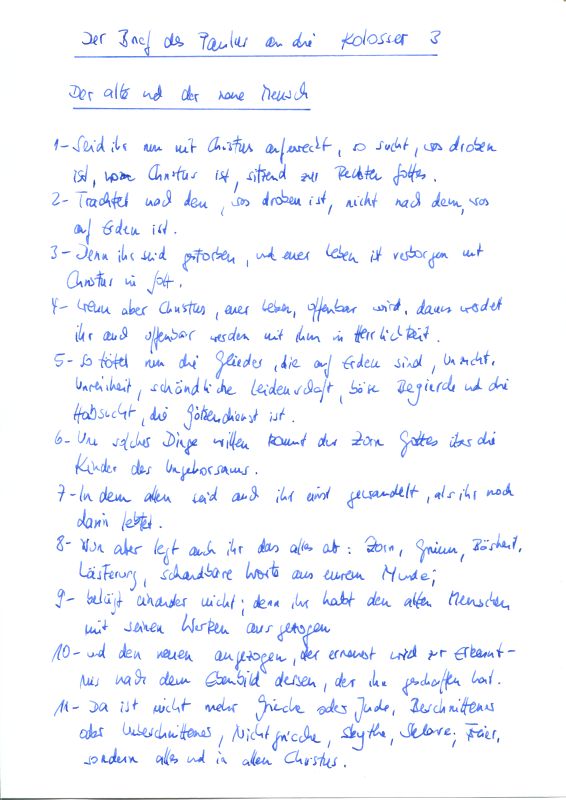 Der Brief des Paulus an die Kolosser 3
Der alte und der neue Mensch
1- Seid ihr nun mit Christus auferweckt, so sucht, was droben
ist, wo Christus ist, sitzend zur Rechten Gottes.
2- Trachtet nach dem, was droben ist, nicht nach dem, was
auf Erden ist.
3- Denn ihr seid gestorben, und euer Leben ist verborgen mit
Christus in Gott.
4- Wenn aber Christus, euer Leben, offenbar wird, dann werdet
ihr auch offenbar werden mit ihm in Herrlichkeit.
5- So tötet nun die Glieder, die auf Erden sind, Unzucht,
Unreinheit, schändliche Leidenschaft, böse Begierde und die
Habsucht, die Götzendienst ist.
6- Um solcher Dinge willen kommt der Zorn Gottes über die
Kinder des Ungehorsams.
7- In dem allen seid auch ihr einst gewandelt, als ihr noch
darin lebtet.
8- Nun aber legt auch ihr das alles ab: Zorn, Grimm, Bosheit,
Lästerung, schandbare Worte aus eurem Munde;
9- belügt einander nicht; denn ihr habt den alten Menschen
mit seinen Werken ausgezogen
10- und den neuen angezogen, der erneuert wird zur Erkennt-
nis nach dem Ebenbild dessen, der ihn geschaffen hat.
11- Da ist nicht mehr Grieche oder Jude, Beschnittener
oder Unbeschnittener, Nichtgrieche, Skythe, Sklave, Freier,
sondern alles und in allen Christus.